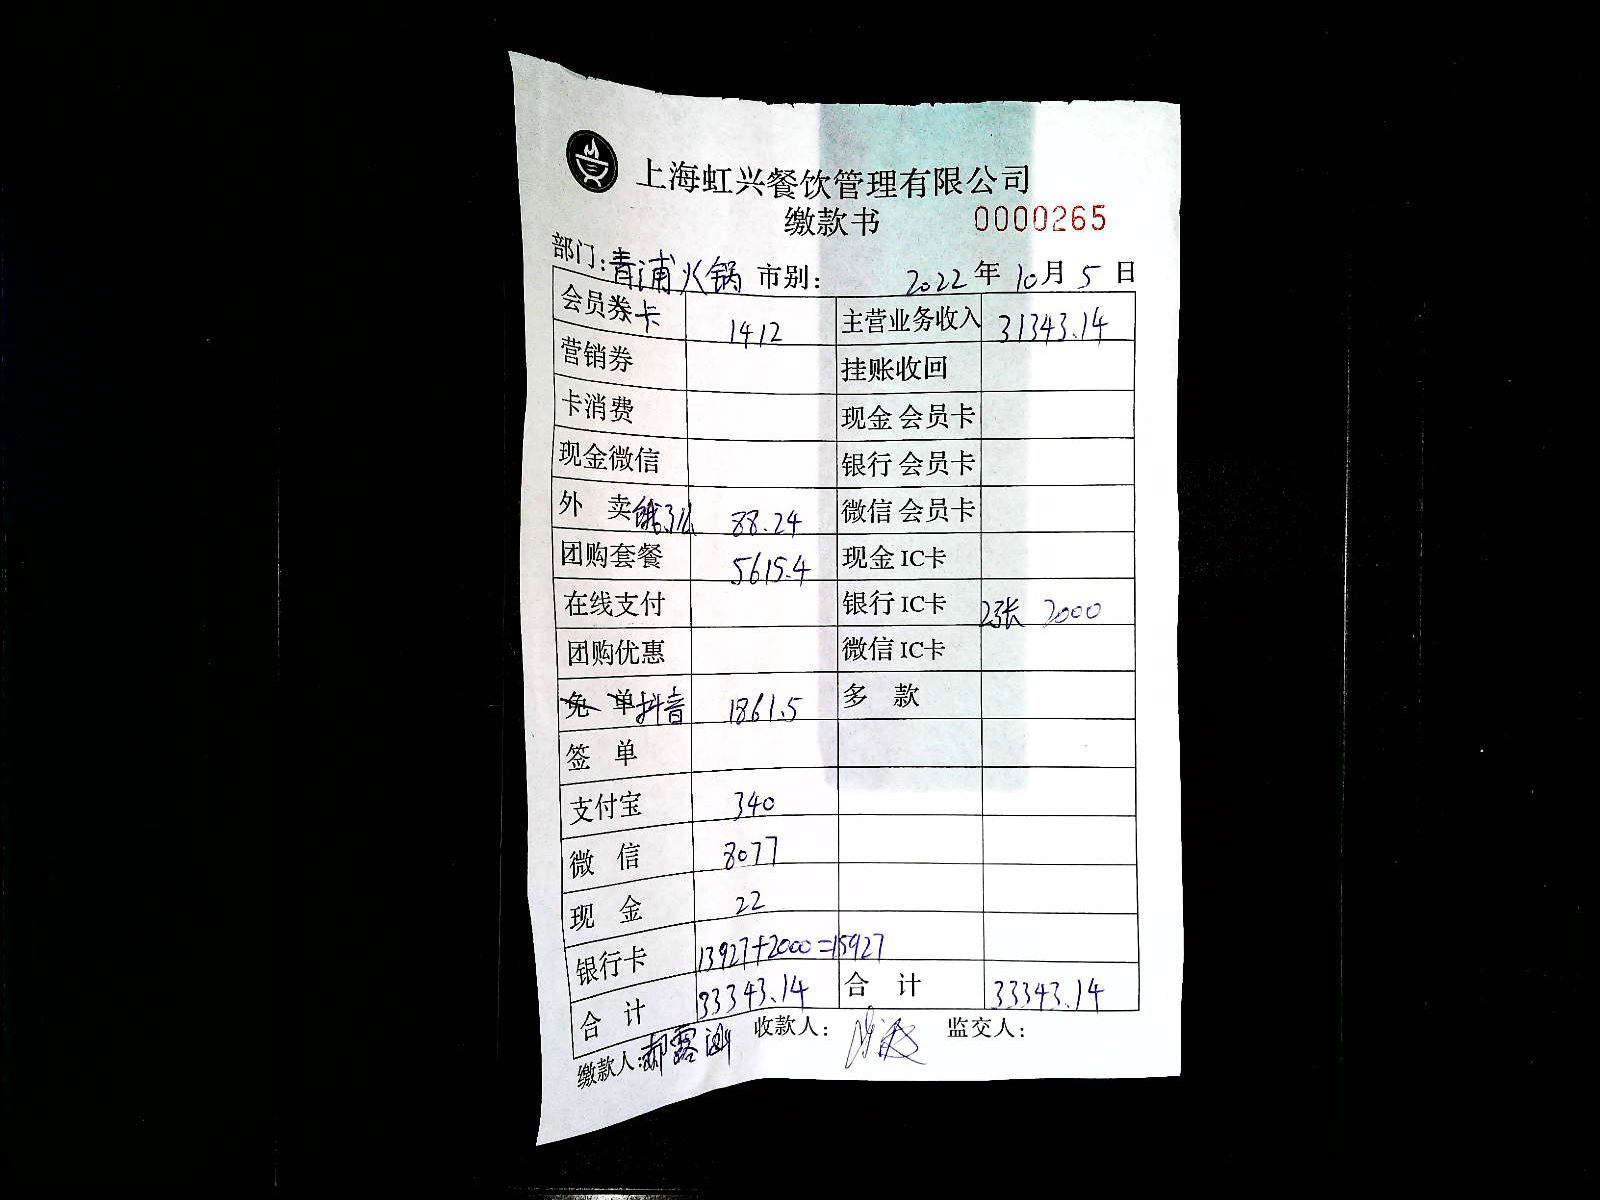 上海虹兴餐饮管理有限公司
缴款书 0000265
部门:青浦火锅 市别: 2022年10月5日
会员券卡 1412 主营业务收入 31343.14
营销券 挂账收回
卡消费 现金会员卡
现金微信 银行会员卡
外 卖 饿了么 88.24 微信会员卡
团购套餐 5615.4 现金IC卡
在线支付 银行IC卡 2张 2000
团购优惠 微信IC卡
免 单 抖音 1861.5 多 款
签 单
支付宝 340
微 信 8077
现 金 22
银行卡 13927+2000=15927
合 计 33343.14 合 计 33343.14
缴款人: 郝露 收款人: 监交人: